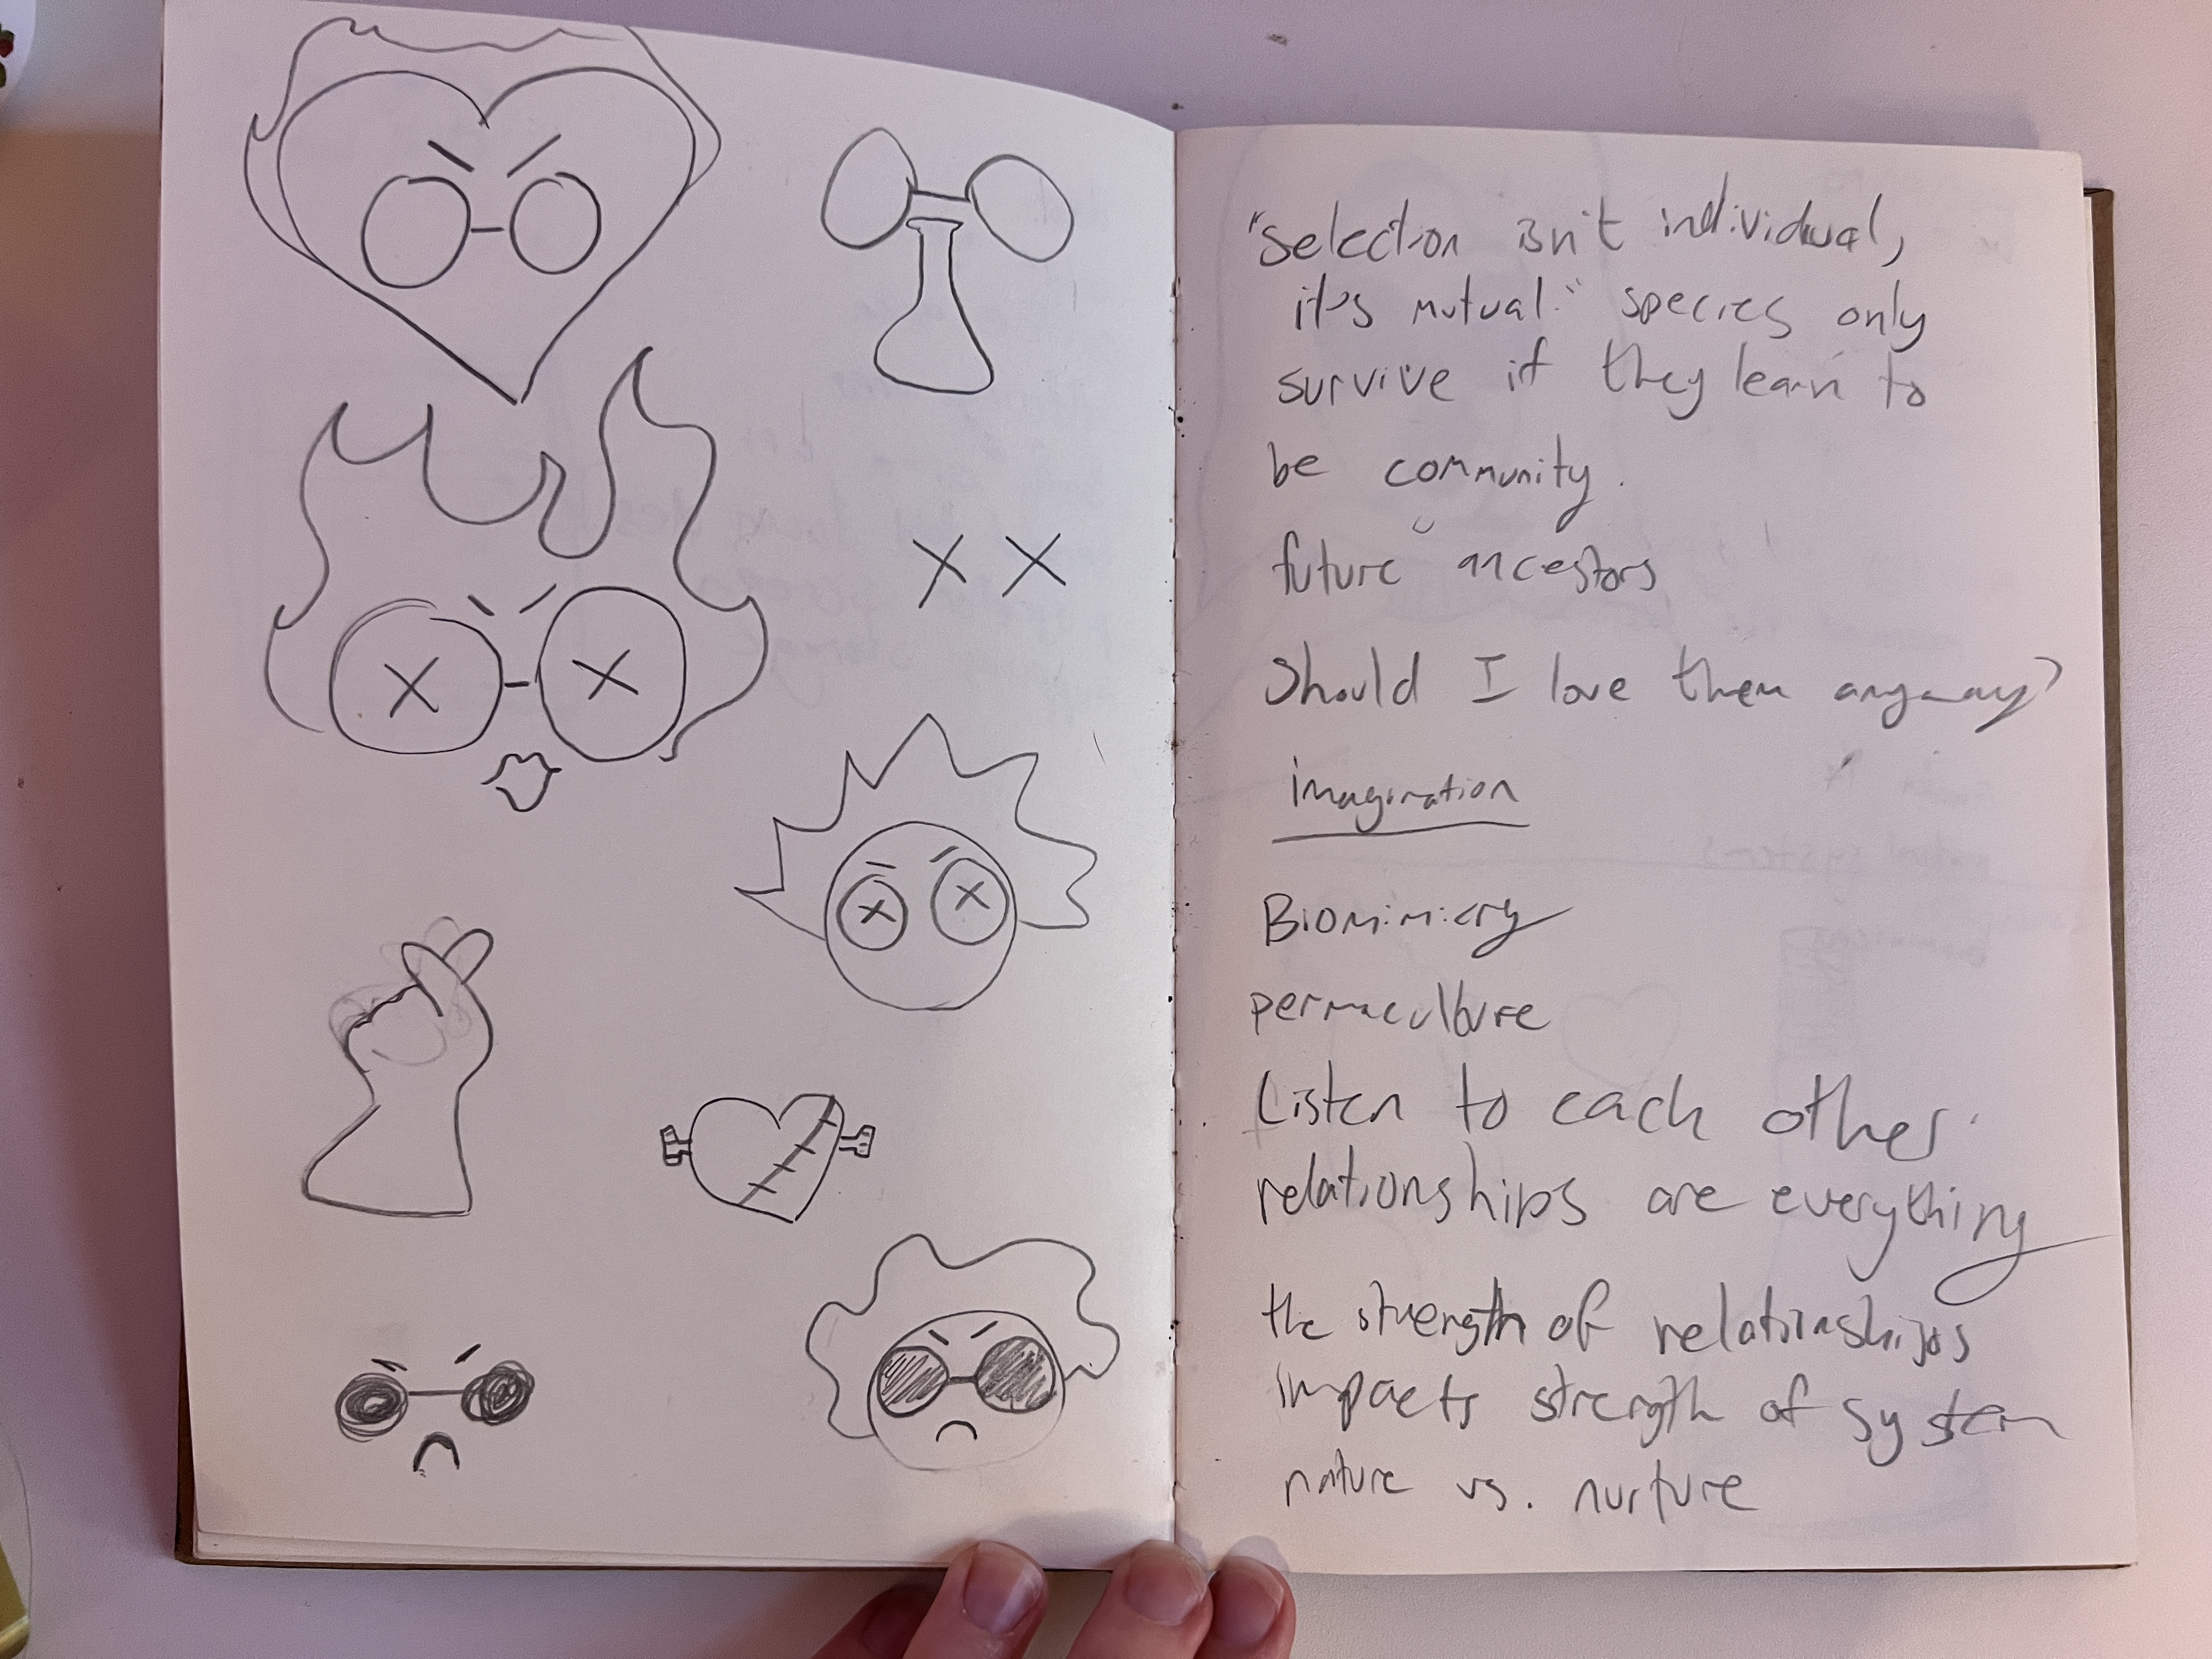 "selection isn't individual,
it's mutual." species only
survive if they learn to
be community.
future ancestors
Should I love them anyway?
imagination
Biomimicry
permaculture
Listen to each other.
relationships are everything
the strength of relationships
impacts strength of system
nature vs. nurture